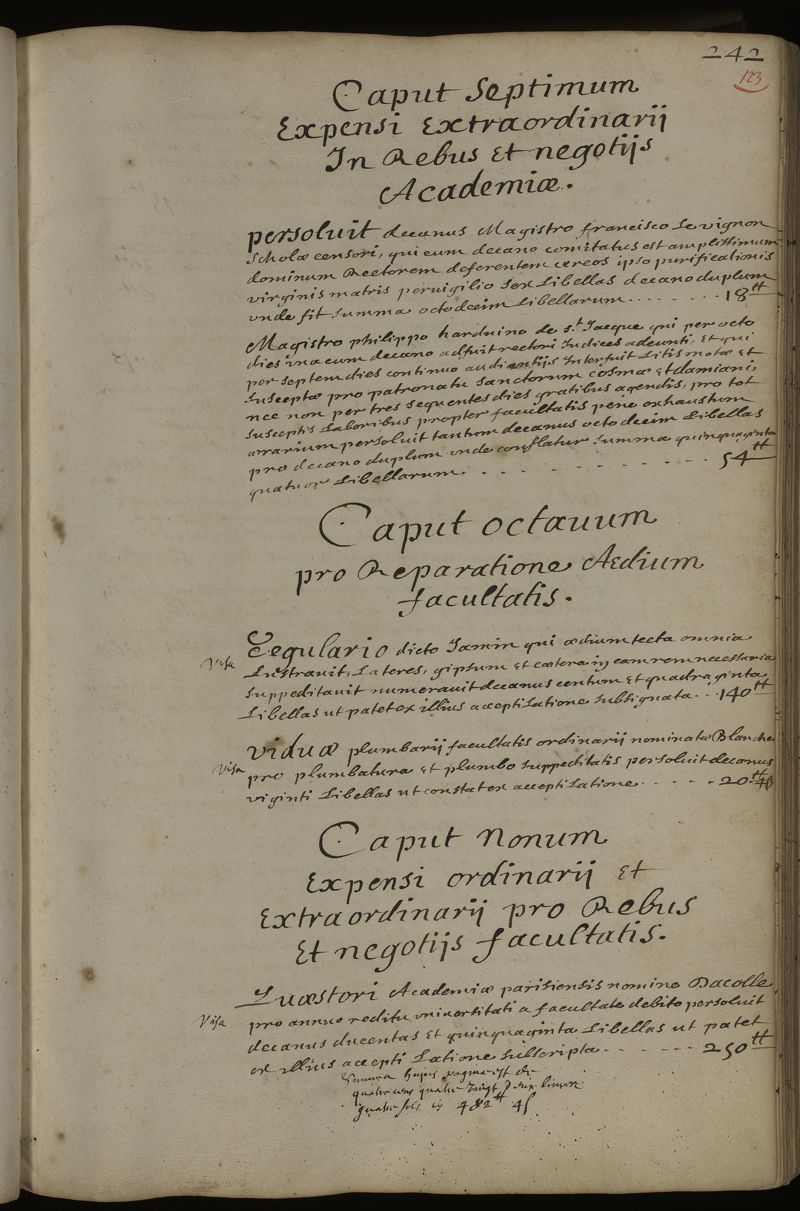 242
123
Caput Septimum
Expensi Extraordinarij
In Rebus Et negotijs
Academiæ.
persoluit decanus Magistro francisco Le vignon
Scholæ censori, qui cum decano comitatus est amplissimum
dominum Rectorem deferentem cereos ipso purificationis
virginis matris pervigilio sex Libellas decano duplum
vnde fit summa octodecim Libellarum . . . . . . . 18tt
Magistro philippo harduino de St Jacque qui per octo
dies vna cum decano adfuit rectori Judices adeunti, Et qui
per septem dies continuo audientijs Interfuit Litis motæ Et
susceptæ pro patronatu sanctorum cosmæ Et damiani,
nec non per tres sequentes dies gratibus agendis, pro tot
susceptis Laboribus propter facultatis pene exhaustum
ærarium persoluit tantum decanus octodecim Libellas
pro decano duplum vnde conflatur summa quinquaginta
quatuor Libellarum . . . . . . . . . . 54tt
Caput octauum
pro Reparatione Ædium
facultatis.
Visa
Tegulario dicto Jamin qui ædium tecta omnia
Lustrauit, Lateres, gipsum Et cætera in eam rem necessaria
suppeditauit numerauit decanus centum Et quadraginta
Libellas ut patet ex illius acceptilatione subsignata . . 140tt
Visa
viduæ plumbarij facultatis ordinarij nominatæ Blanche
pro plumbatura Et plumbo suppeditatis persoluit decanus
viginti Libellas ut constat ex acceptilatione . . . . . 20tt 4s
Caput Nonum
Expensi ordinarij Et
Extraordinarij pro Rebus
Et negotijs facultatis.
Visa
Quæstori Academiæ parisiensis nomine Bacolle
pro annuo reditu vniversitati a facultate debito persoluit
decanus ducentas Et quinquaginta Libellas ut patet
ex illius acceptilatione subscripta . . . . . . 250tt
Somme de
quatre cens quatre vingt deux livres
quatre sols cy 482tt 4s